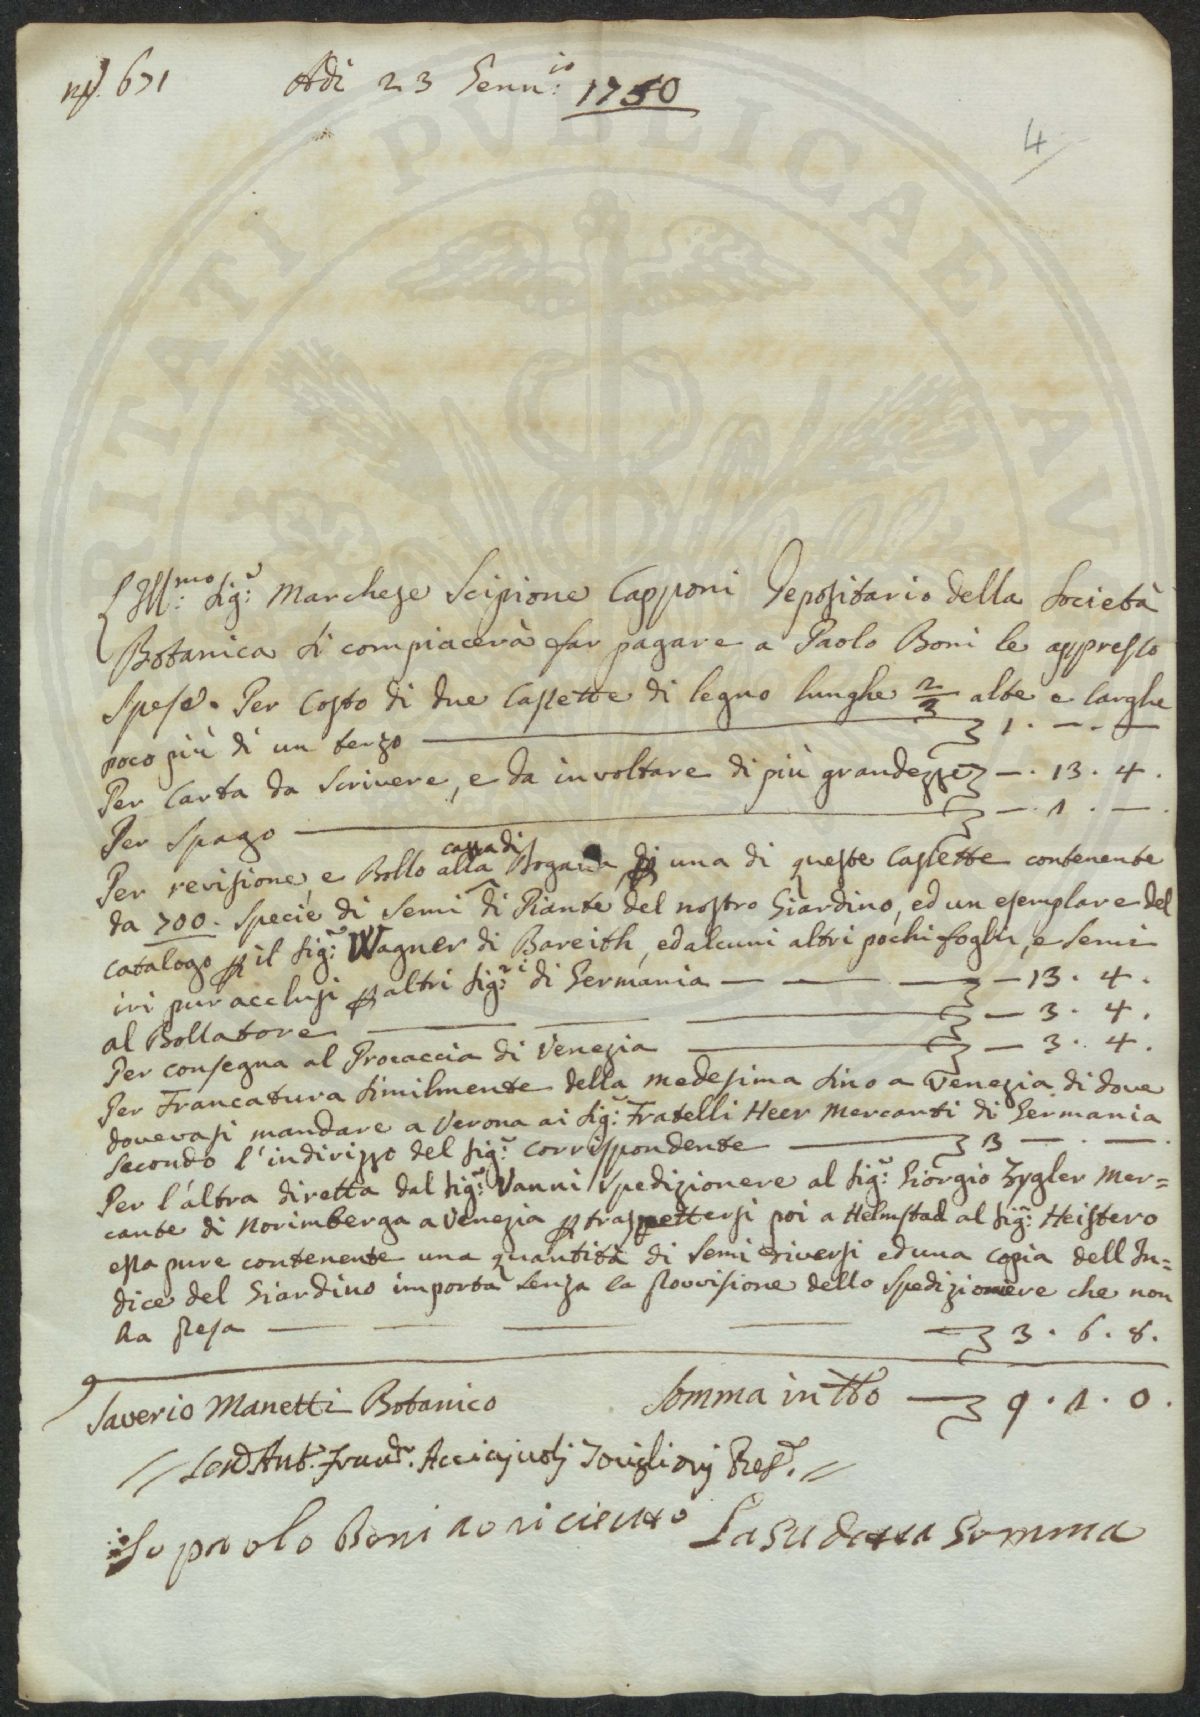 671 Adi 23 Genn:io 1750
4
Ill:mo Sig:r Marchese Scipione Capponi Depositario della Società
Botanica si compiacerà far pagare a Paolo Boni le appresso
spese. Per Costo di due Cassette di legno lunghe 2/3 alte e larghe
poco più di un terzo 1 . — . —
Per Carta da scrivere, e da involtare di più grandezze — . 13 . 4 .
Per Spago — . 1 . — .
Per revisione, e Bollo alla cassa di Dogana di una di queste Cassette contenente
da 700. specie di semi di Piante del nostro Giardino, ed un esemplare del
catalogo p il Sig:r Wagner di Bareith, ed alcuni altri pochi fogli, e semi
ivi pur acclusi p altri Sig:ri di Germania — 13 . 4 .
al Bollatore — 3 . 4 .
Per consegna al Procaccia di Venezia — 3 . 4 .
Per Francatura similmente della medesima sino a Venezia di dove
dovevasi mandare a Verona ai Sig:ri Fratelli Heer Mercanti di Germania
secondo l'indirizzo del Sig:r corrispondente 3 — . — .
Per l'altra diretta dal Sig:r Vanni spedizionere al Sig:r Giorgio Zygler Mer=
cante di Norimberga a Venezia p trasmettersi poi a Helmstad al Sig:r Heistero
essa pure contenente una quantità di semi diversi ed una copia dell In=
dice del Giardino importa senza la provvisione dello spedizionere che non
ha presa 3 . 6 . 8 .
Saverio Manetti Botanico Somma in tto 9 . 1 . 0 .
// Ant. Acciajuoli Pres. //
Io paolo Boni o riceuto La su detta somma
RITATI PVBLICAE AV